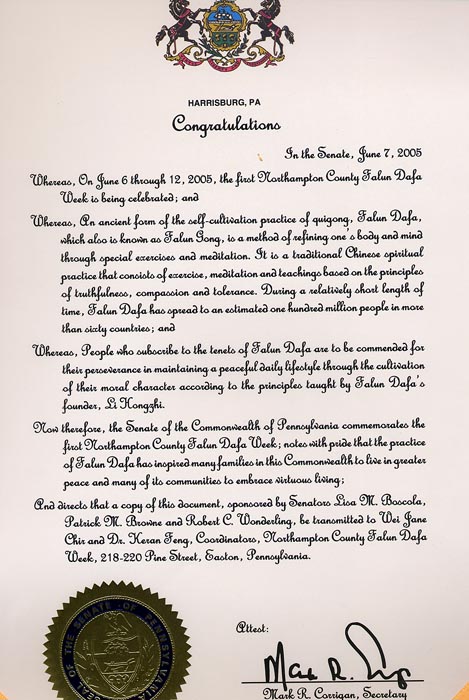 HARRISBURG, PA
Congratulations
In the Senate, June 7, 2005
Whereas, On June 6 through 12, 2005, the first Northampton County Falun Dafa
Week is being celebrated; and
Whereas, An ancient form of the self-cultivation practice of quigong, Falun Dafa,
which also is known as Falun Gong, is a method of refining one's body and mind
through special exercises and meditation. It is a traditional Chinese spiritual
practice that consists of exercise, meditation and teachings based on the principles
of truthfulness, compassion and tolerance. During a relatively short length of
time, Falun Dafa has spread to an estimated one hundred million people in more
than sixty countries; and
Whereas, People who subscribe to the tenets of Falun Dafa are to be commended for
their perseverance in maintaining a peaceful daily lifestyle through the cultivation
of their moral character according to the principles taught by Falun Dafa's
founder, Li Hongzhi.
Now therefore, the Senate of the Commonwealth of Pennsylvania commemorates the
first Northampton County Falun Dafa Week; notes with pride that the practice
of Falun Dafa has inspired many families in this Commonwealth to live in greater
peace and many of its communities to embrace virtuous living;
And directs that a copy of this document, sponsored by Senators Lisa M. Boscola,
Patrick M. Browne and Robert C. Wonderling, be transmitted to Wei Jane
Chir and Dr. Heran Feng, Coordinators, Northampton County Falun Dafa
Week, 218-220 Pine Street, Easton, Pennsylvania.
SEAL OF THE SENATE OF PENNSYLVANIA
Attest:
Mark R. Corrigan, Secretary